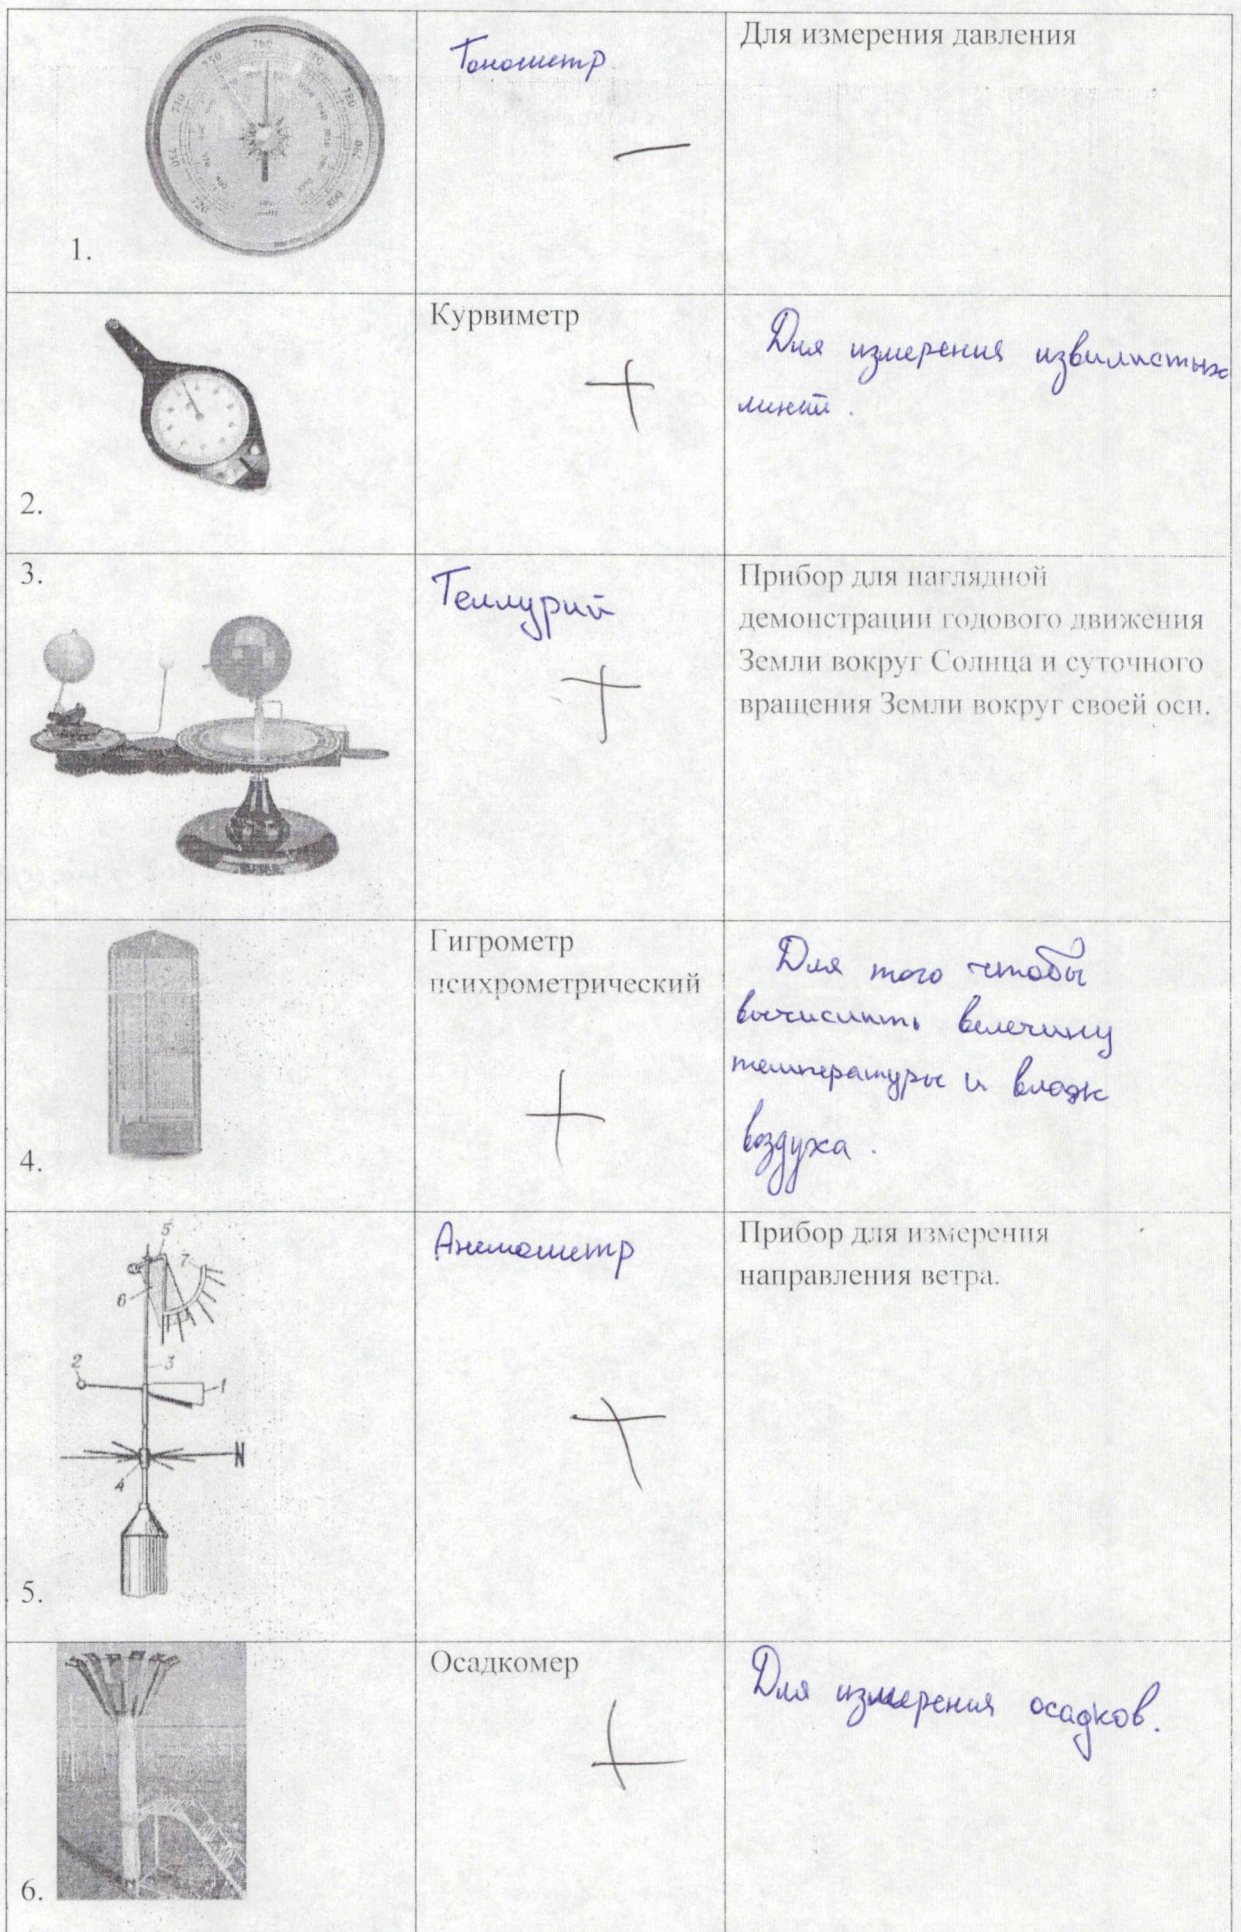 Тонометр
Для измерения давления
750
760
770
780
790
800
740
730
720
1.
Курвиметр
Для измерения извилистых
линий.
2.
3.
Теллурий
Прибор для наглядной
демонстрации годового движения
Земли вокруг Солнца и суточного
вращения Земли вокруг своей оси.
Гигрометр
психрометрический
Для того чтобы
вычислить величину
температуры и влажн
воздуха.
4.
Анемометр
Прибор для измерения
направления ветра.
5
7
6
3
2
1
N
4
5.
Осадкомер
Для измерения осадков.
6.